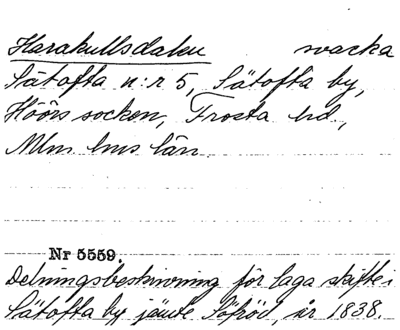 Harakullsdalen svacka
Sätofta n:r 5, Sätofta by,
Höörs socken, Frosta hd,
Mlm hus län.
Nr 5559.
Delningsbeskrivning för laga skifte i
Sätofta by jämte Söfröd, år 1838.